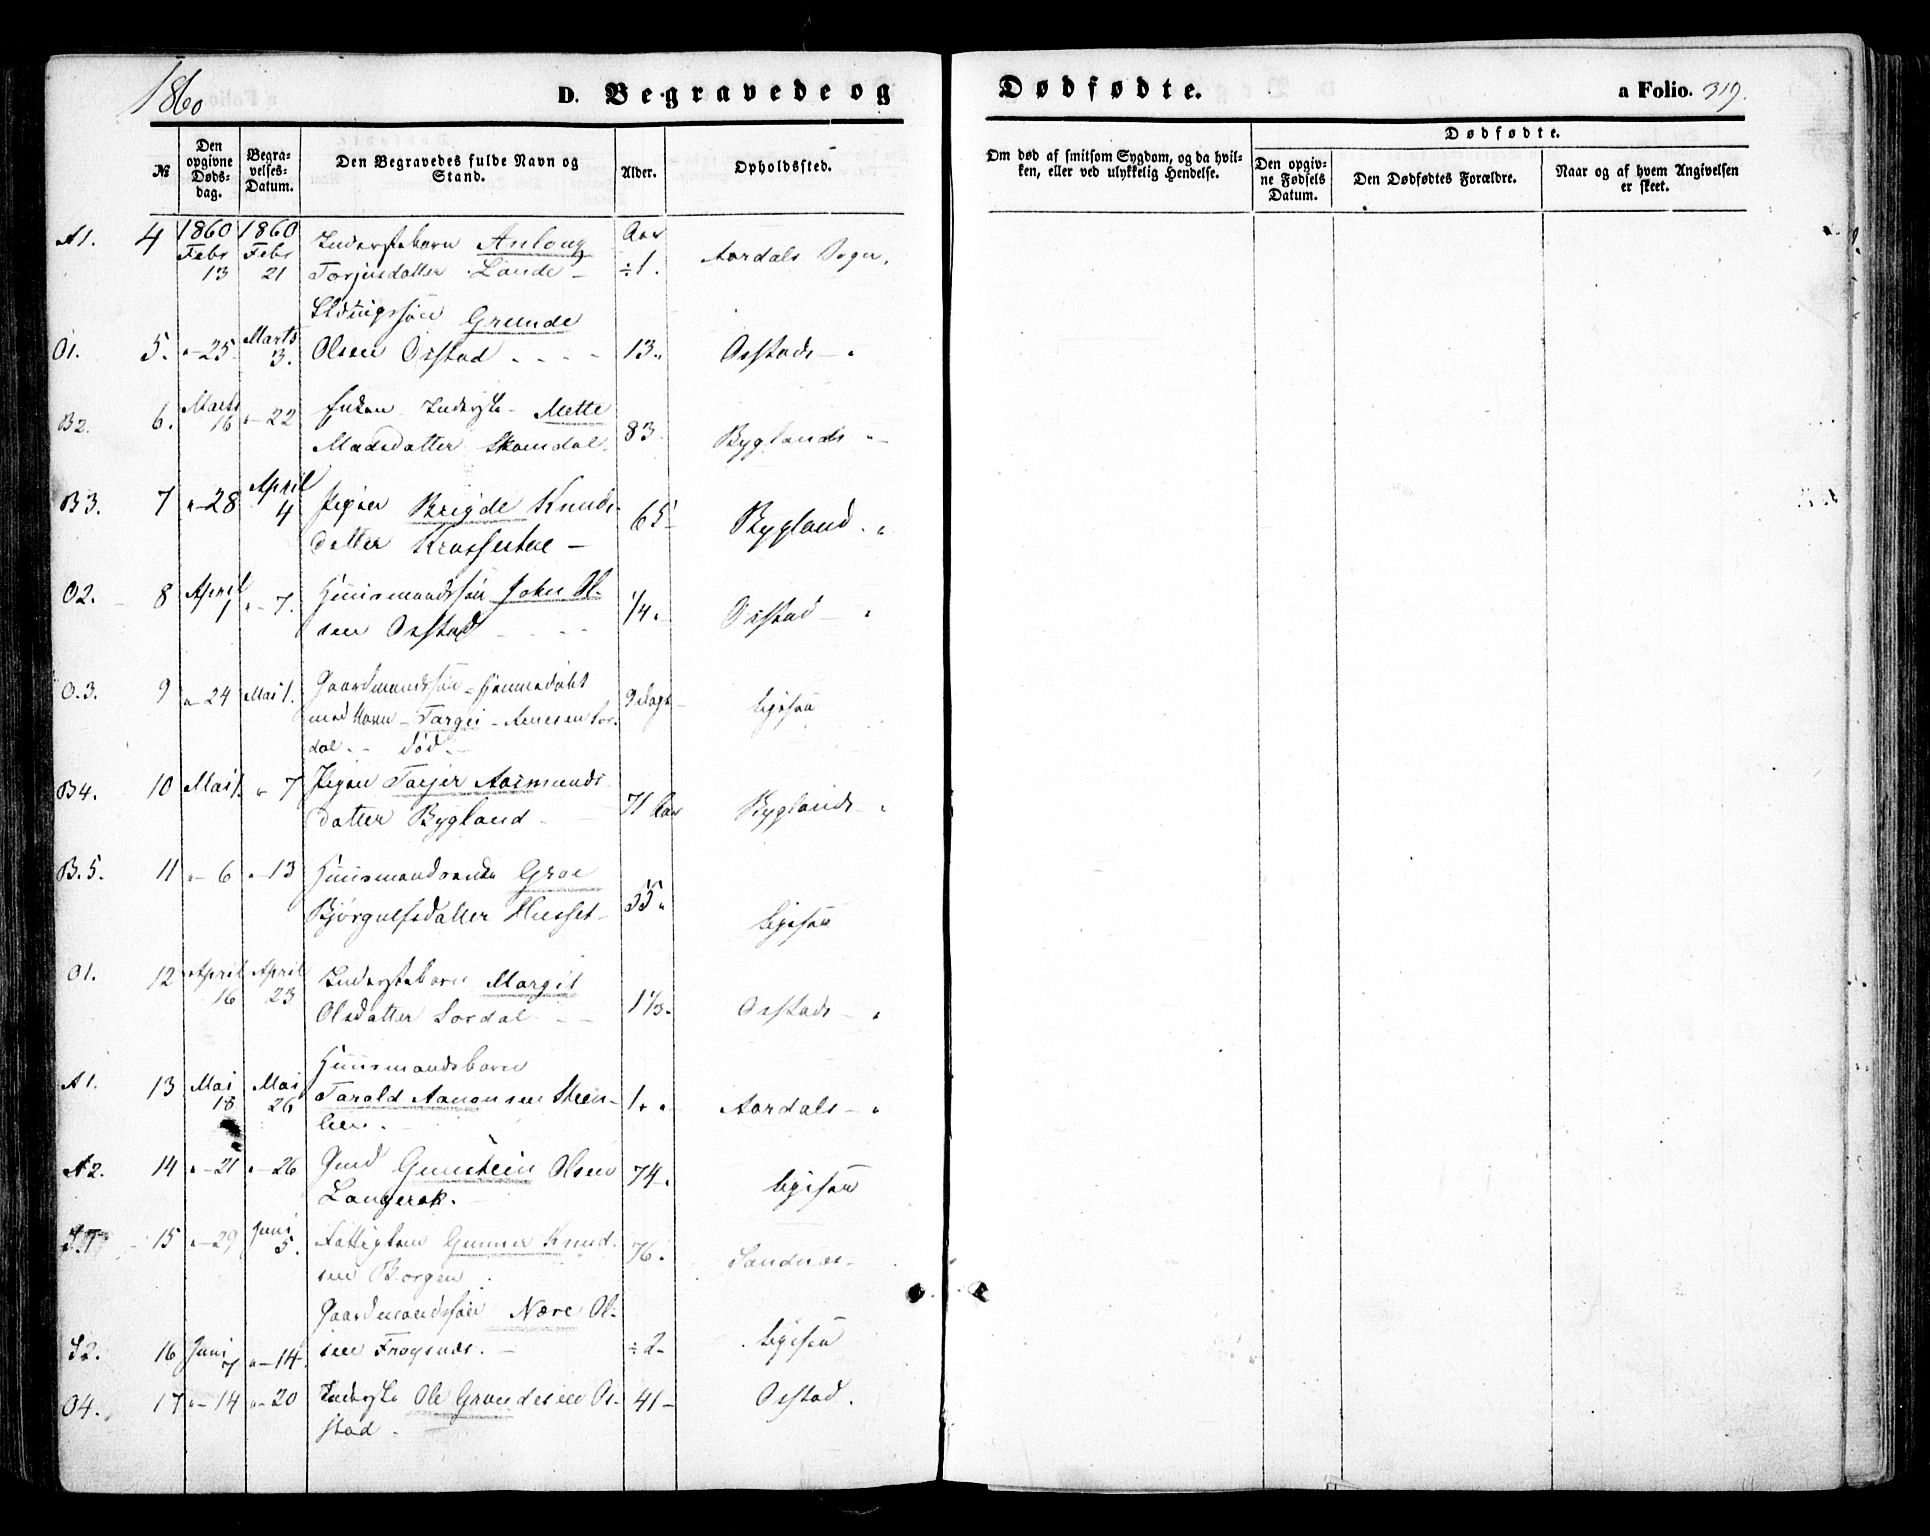 1860
D. Begravede og Dødfødte. a Folio. 319.
№
Den opgivne Dødsdag.
Begravelses-Datum.
Den Begravedes fulde Navn og Stand.
Alder.
Opholdssted.
Om død af smitsom Sygdom, og da hvilken, eller ved ulykkelig Hendelse.
Dødfødte.
Den opgivne Fødsels Datum.
Den Dødfødtes Forældre.
Naar og af hvem Angivelsen er skeet.
A1. 4 1860 Febr 13 1860 Febr 21 Inderstebarn Anlaug Aar
Torjusdatter Lande - ÷1. Aardals Sogn.
Grunde
O1. 5. "-25 Marts 3. Olsen Ostad - - - 13. Ostads - "
B2. 6. Marts 16 "-22 Enken Inderste - Mette
Madsdatter Skomdal. 83. Byglands "-
B3. 7 "-28 April 4 Pigen Brigde Knuds-
datter - 65- Bygland. "
O2. 8 April 1 "-7. Huusmandssøn John Ol-
sen Ostad - - - 1/4. Ostad - "
O.3. 9 "-24 Mai 1. Gaardmandssøn - hjemmedøbt
med Navn - Targei - Arnesen Lor-
dal - - død - 9 dage - ligesaa
B4. 10 Mai 1. "-7 Pigen Torjer Aasmunds-
datter Bygland - 71 Aar Byglands - "
B.5. 11 "-6 "-13 Huusmandsenke Groe
Bjørgulfsdatter Huset - 55. ligesaa
O1. 12 April 16 April 23 Inderstebarn Margit
Olsdatter Lordal - - 1 1/3. Ostads - "
A1. 13 Mai 18 Mai 26 Huusmandsbarn
Tarald Aanonsen Steen-
lien. - 1. " Aardals - "
A2. 14 "-21 "-26 Gmd Gunstein Olsen
Langerak. - 74. ligesaa
S.1 15 "-29 Juni 5. Fattiglem Gunner Knud-
sen Borgen 76. Sandnes -
Gaardmandssøn Nære Ol-
S2. 16 Juni 7 "-14. sen Frøysnæs. - ÷2- ligesaa
O4. 17 "-14 "-20 Inderste Ole Grundesen Os-
stad. - 41- Ostad.